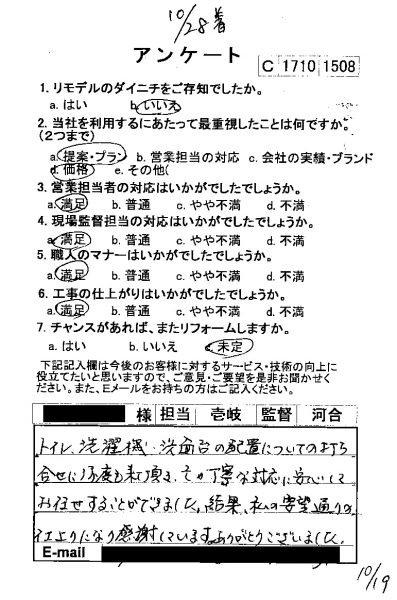 10/28着
アンケート
C 1710 1508
1. リモデルのダイニチをご存知でしたか。
a. はい b. いいえ
2. 当社を利用するにあたって最重視したことは何ですか。
(2つまで)
a. 提案・プラン b. 営業担当の対応 c. 会社の実績・ブランド
d. 価格 e. その他(
3. 営業担当者の対応はいかがでしたでしょうか。
a. 満足 b. 普通 c. やや不満 d. 不満
4. 現場監督担当の対応はいかがでしたでしょうか。
a. 満足 b. 普通 c. やや不満 d. 不満
5. 職人のマナーはいかがでしたでしょうか。
a. 満足 b. 普通 c. やや不満 d. 不満
6. 工事の仕上がりはいかがでしたでしょうか。
a. 満足 b. 普通 c. やや不満 d. 不満
7. チャンスがあれば、またリフォームしますか。
a. はい b. いいえ c. 未定
下記記入欄は今後のお客様に対するサービス・技術の向上に
役立てたいと思いますので、ご意見・ご要望を是非お聞かせく
ださい。また、Eメールをお持ちの方はご記入ください。
様 担当 壱岐 監督 河合
トイレ、洗濯機・洗面台の配置についての打ち
合せに何度も来て頂き、その丁寧な対応に安心して
お任せすることができました。結果、私の要望通りの
仕上りになり感謝しています。ありがとうございました。
E-mail
10/19